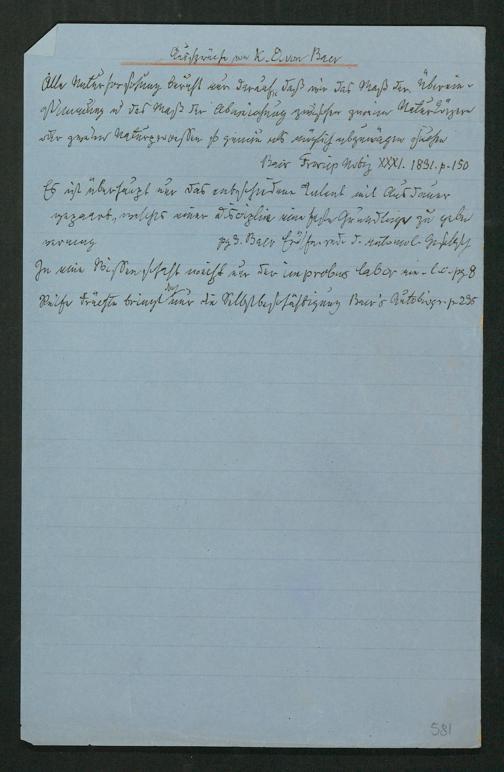 Aussprüche von K. E. von Baer
Alle Naturforschung beruht nur darauf, daß wir das Maß der Überein-
stimmung u das Maß der Abweichung zwischen zweien Naturkörpern
oder zweien Naturprozessen so genau als möglich abzuwägen suchen
Baer Froriep Notiz XXXI. 1831. p. 150
Es ist überhaupt nur das entschiedene Talent mit Ausdauer
gepaart, welches einer Disciplin eine feste Grundlage zu geben
vermag pg 9. Baer Eröffn. rede d. entomol. Gesellsch
In eine Wissenschaft weiht nur der improbus labor ein - l. c. pg. 8
Reife Früchte bringt doch nur die Selbstbeschäftigung Baer's Autobiogr. p. 235
581